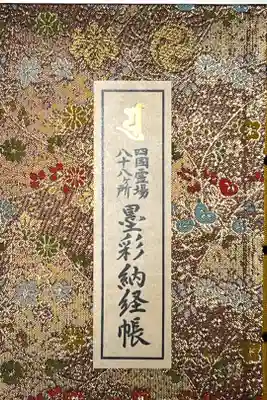 四國霊場
八十八ヶ所
墨彩納経帳